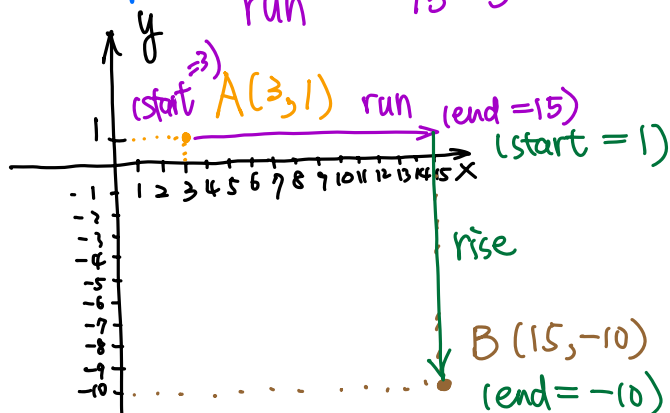 run 15
y
(start =3) A(3,1) run (end =15)
(start = 1)
1
x
1 2 3 4 5 6 7 8 9 10 11 12 13 14 15
-1
-2
-3
-4
-5
-6
-7
-8
-9
-10
rise
B (15,-10)
(end= -10)